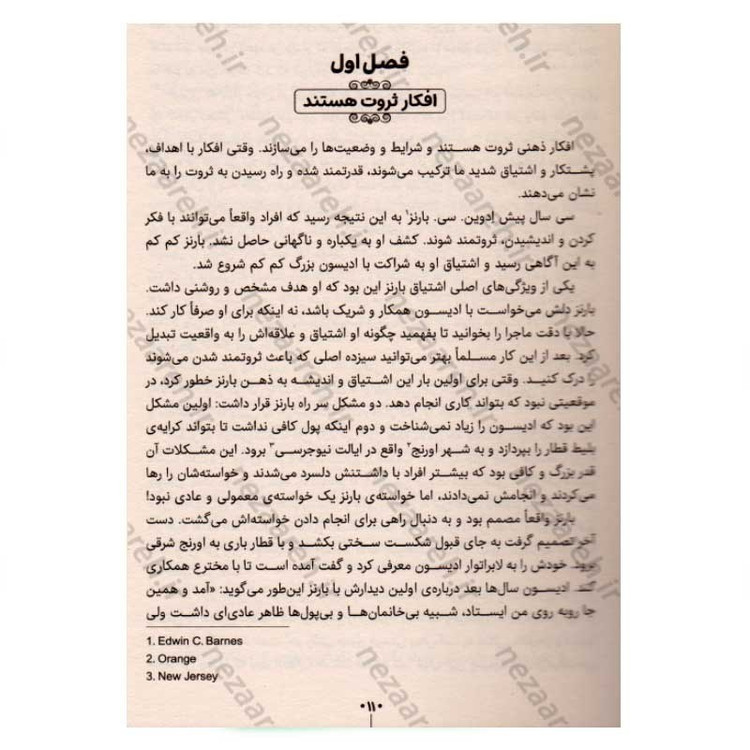 فصل اول
افکار ثروت هستند
افکار ذهنی ثروت هستند و شرایط و وضعیت‌ها را می‌سازند. وقتی افکار با اهداف،
پشتکار و اشتیاق شدید ما ترکیب می‌شوند، قدرتمند شده و راه رسیدن به ثروت را به ما
نشان می‌دهند.
سی سال پیش اِدوین. سی. بارنز¹ به این نتیجه رسید که افراد واقعاً می‌توانند با فکر
کردن و اندیشیدن، ثروتمند شوند. کشف او به یکباره و ناگهانی حاصل نشد. بارنز کم کم
به این آگاهی رسید و اشتیاق او به شراکت با ادیسون بزرگ کم کم شروع شد.
یکی از ویژگی‌های اصلی اشتیاق بارنز این بود که او هدف مشخص و روشنی داشت.
بارنز دلش می‌خواست با ادیسون همکار و شریک باشد، نه اینکه برای او صرفاً کار کند.
حالا با دقت ماجرا را بخوانید تا بفهمید چگونه او اشتیاق و علاقه‌اش را به واقعیت تبدیل
کرد. بعد از این کار مسلماً بهتر می‌توانید سیزده اصلی که باعث ثروتمند شدن می‌شوند
را درک کنید. وقتی برای اولین بار این اشتیاق و اندیشه به ذهن بارنز خطور کرد، در
موقعیتی نبود که بتواند کاری انجام دهد. دو مشکل سر راه بارنز قرار داشت: اولین مشکل
این بود که ادیسون را زیاد نمی‌شناخت و دوم اینکه پول کافی نداشت تا بتواند کرایه‌ی
بلیط قطار را بپردازد و به شهر اورنج² واقع در ایالت نیوجرسی³ برود. این مشکلات آن
قدر بزرگ و کافی بود که بیشتر افراد با داشتنش دلسرد می‌شدند و خواسته‌شان را رها
می‌کردند و انجامش نمی‌دادند، اما خواسته‌ی بارنز یک خواسته‌ی معمولی و عادی نبود!
بارنز واقعاً مصمم بود و به دنبال راهی برای انجام دادن خواسته‌اش می‌گشت. دست
آخر تصمیم گرفت به جای قبول شکست سختی بکشد و با قطار باری به اورنج شرقی
برود. خودش را به لابراتوار ادیسون معرفی کرد و گفت آمده است تا با مخترع همکاری
کند. ادیسون سال‌ها بعد درباره‌ی اولین دیدارش با بارنز این‌طور می‌گوید: «آمد و همین
جا روبه روی من ایستاد، شبیه بی‌خانمان‌ها و بی‌پول‌ها ظاهر عادی‌ای داشت ولی
1. Edwin C. Barnes
2. Orange
3. New Jersey
۱۱
nezaareh.ir